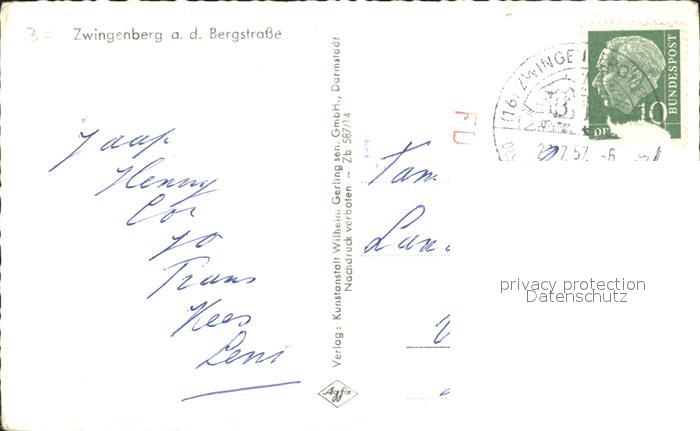 3=
Zwingenberg a. d. Bergstraße
Jaap
Henny
Cor
Jo
Frans
Kees
Leni
Verlag: Kunstanstalt Wilhelm Gerling sen. GmbH., Darmstadt
Nachdruck verboten — Zb 587/14
Agfa
(16) ZWINGE
10
BUNDESPOST
Fam
Lan
privacy protection
Datenschutz